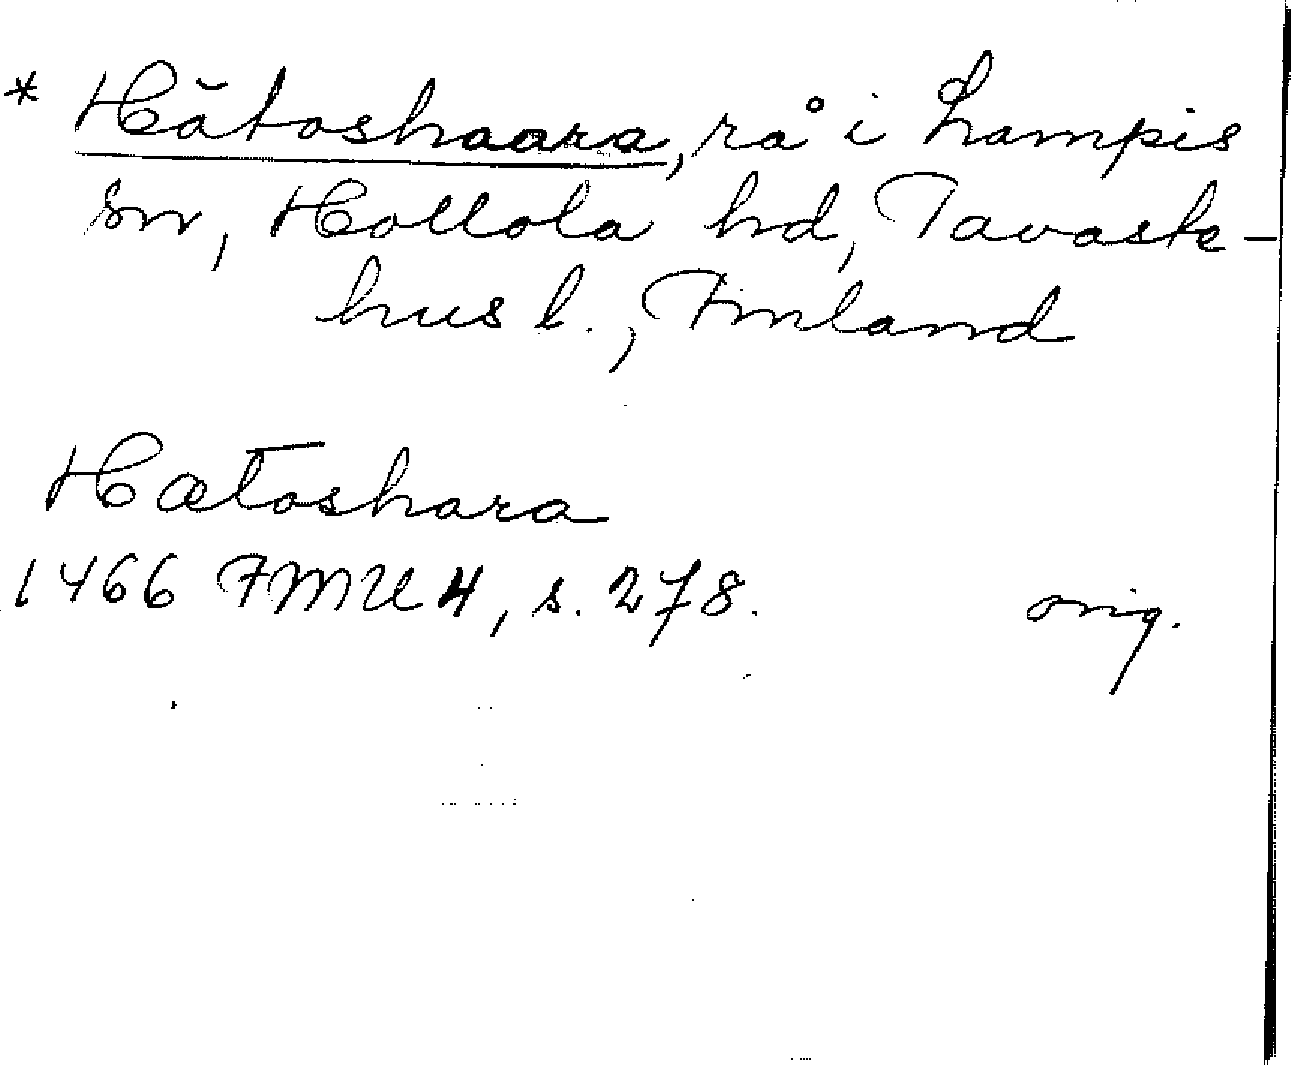 * Hätoshaara, rå i Lampis
sn, Hollola hd, Tavaste-
hus l., Finland
Hætoshara
1466 FMU 4, s. 278. orig.